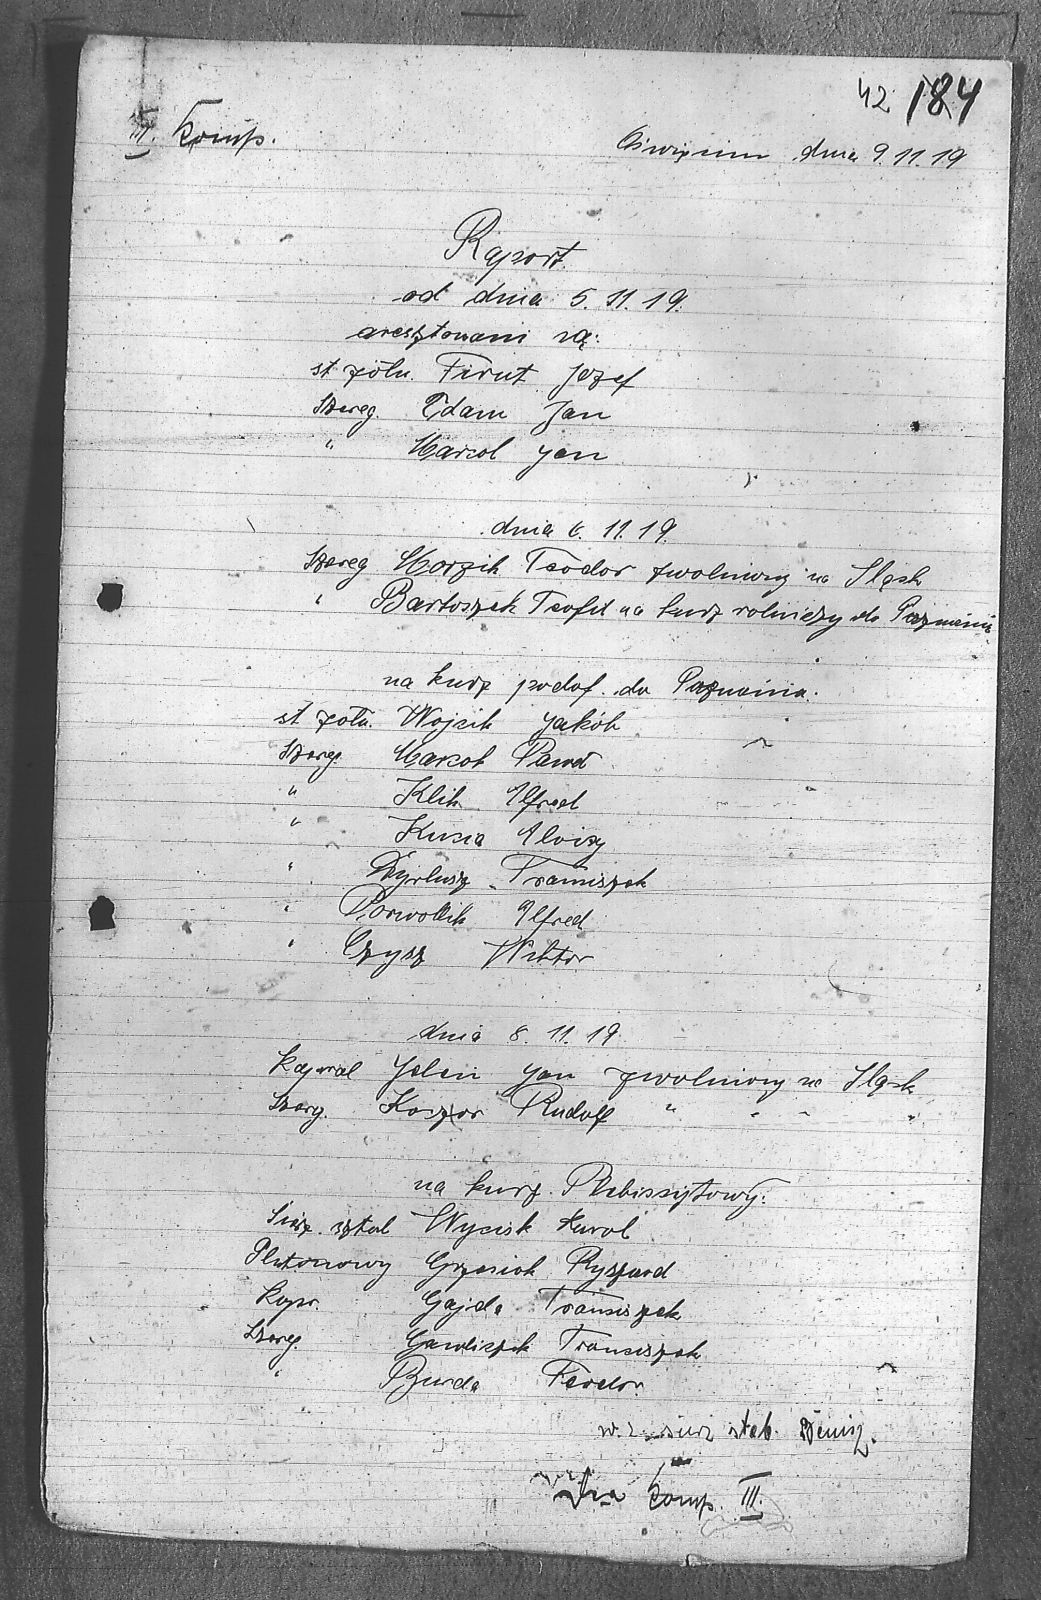 42 184
III. Komp.
Oświęcim dnia 9.11.19
Raport.
od dnia 5.11.19.
aresztowani są:
st. żołn. Firut Józef
Szereg. Adam Jan
" Marcol Jan
dnia 6.11.19.
Szereg Morzik Teodor zwolniony na Śląsk
" Bartoszek Teofil na kurz rolniczy do Poznania
na kurz podof. do Poznania.
st. żołn. Wojcik Jakób
Szereg. Marcol Paweł
" Klik Alfred
" Kuzia Aloizy
" Franciszek
" Porwolik Alfred
" Czysz Wiktor
dnia 8.11.19.
Kapral Jelen Jan zwolniony na Śląsk
Szereg. Rudolf " " " "
na kurz. Plebiscytowy.
Sierż. sztab Wycisk Karol
Plutonowy Grzesiok Ryszard
Kapr. Gajda Franciszek
Szereg. Gawliczek Franciszek
" Burda Teodor
w. z. sierż. stab.
Komp. III.